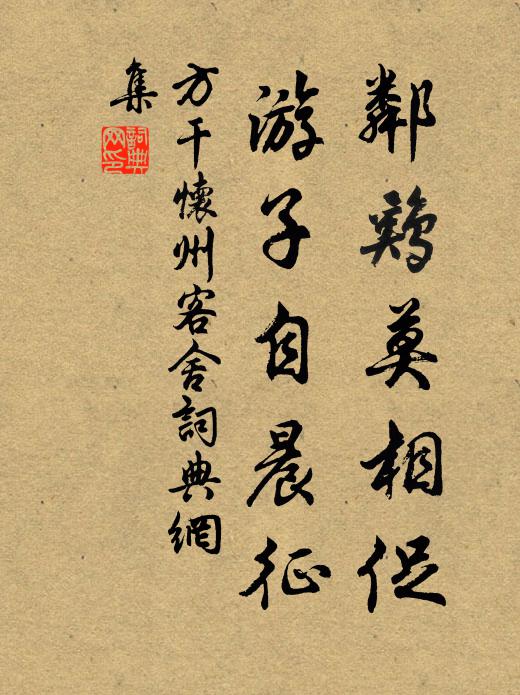 鄰鷄莫相促
游子自晨征
方干懷州客舍詞典網
集
詞典
网印